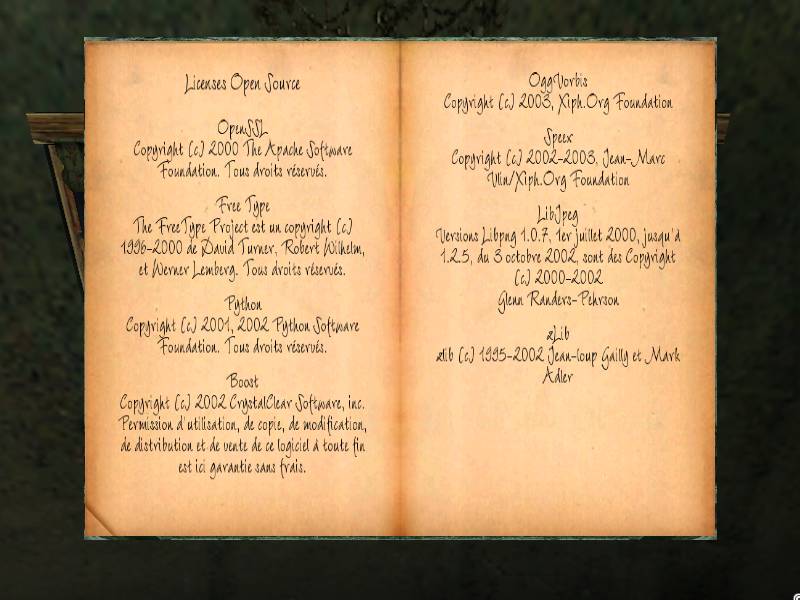 Licenses Open Source
OpenSSL
Copyright (c) 2000 The Apache Software
Foundation. Tous droits réservés.
Free Type
The FreeType Project est un copyright (c)
1996-2000 de David Turner, Robert Wilhelm,
et Werner Lemberg. Tous droits réservés.
Python
Copyright (c) 2001, 2002 Python Software
Foundation. Tous droits réservés.
Boost
Copyright (c) 2002 CrystalClear Software, inc.
Permission d'utilisation, de copie, de modification,
de distribution et de vente de ce logiciel à toute fin
est ici garantie sans frais.
OggVorbis
Copyright (c) 2003, Xiph.Org Foundation
Speex
Copyright (c) 2002-2003, Jean-Marc
Vlin/Xiph.Org Foundation
LibJpeg
Versions Libpng 1.0.7, 1er juillet 2000, jusqu'à
1.2.5, du 3 octobre 2002, sont des Copyright
(c) 2000-2002
Glenn Randers-Pehrson
zLib
zlib (c) 1995-2002 Jean-loup Gailly et Mark
Adler